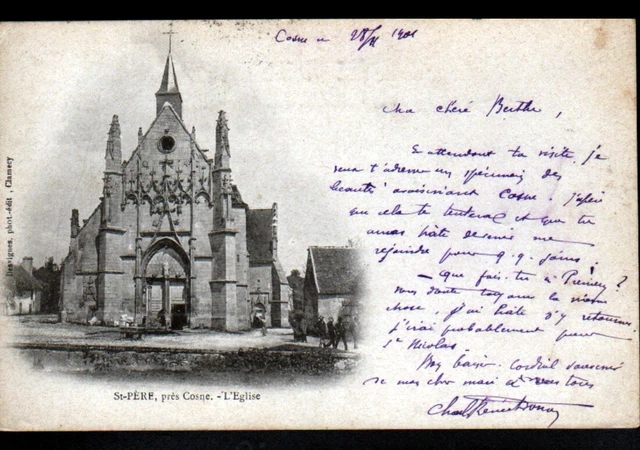 Cosne le 28/XI 1901
Ma chère Berthe,
En attendant ta visite, je
veux t'adresser un spécimen des
beautés avoisinant Cosne. J'espère
que cela te tentera et que tu
auras hâte de venir me
rejoindre pour q.q. jours!
- Que fais-tu à Prémery?
sans doute toujours la même
chose. J'ai hâte d'y retourner
j'irai probablement pour
St Nicolas.
Bon baiser. Cordial souvenir
de mon cher mari à vous tous
Desvignes, phot.-édit., Clamecy
St-PÈRE, près Cosne. - L'Eglise